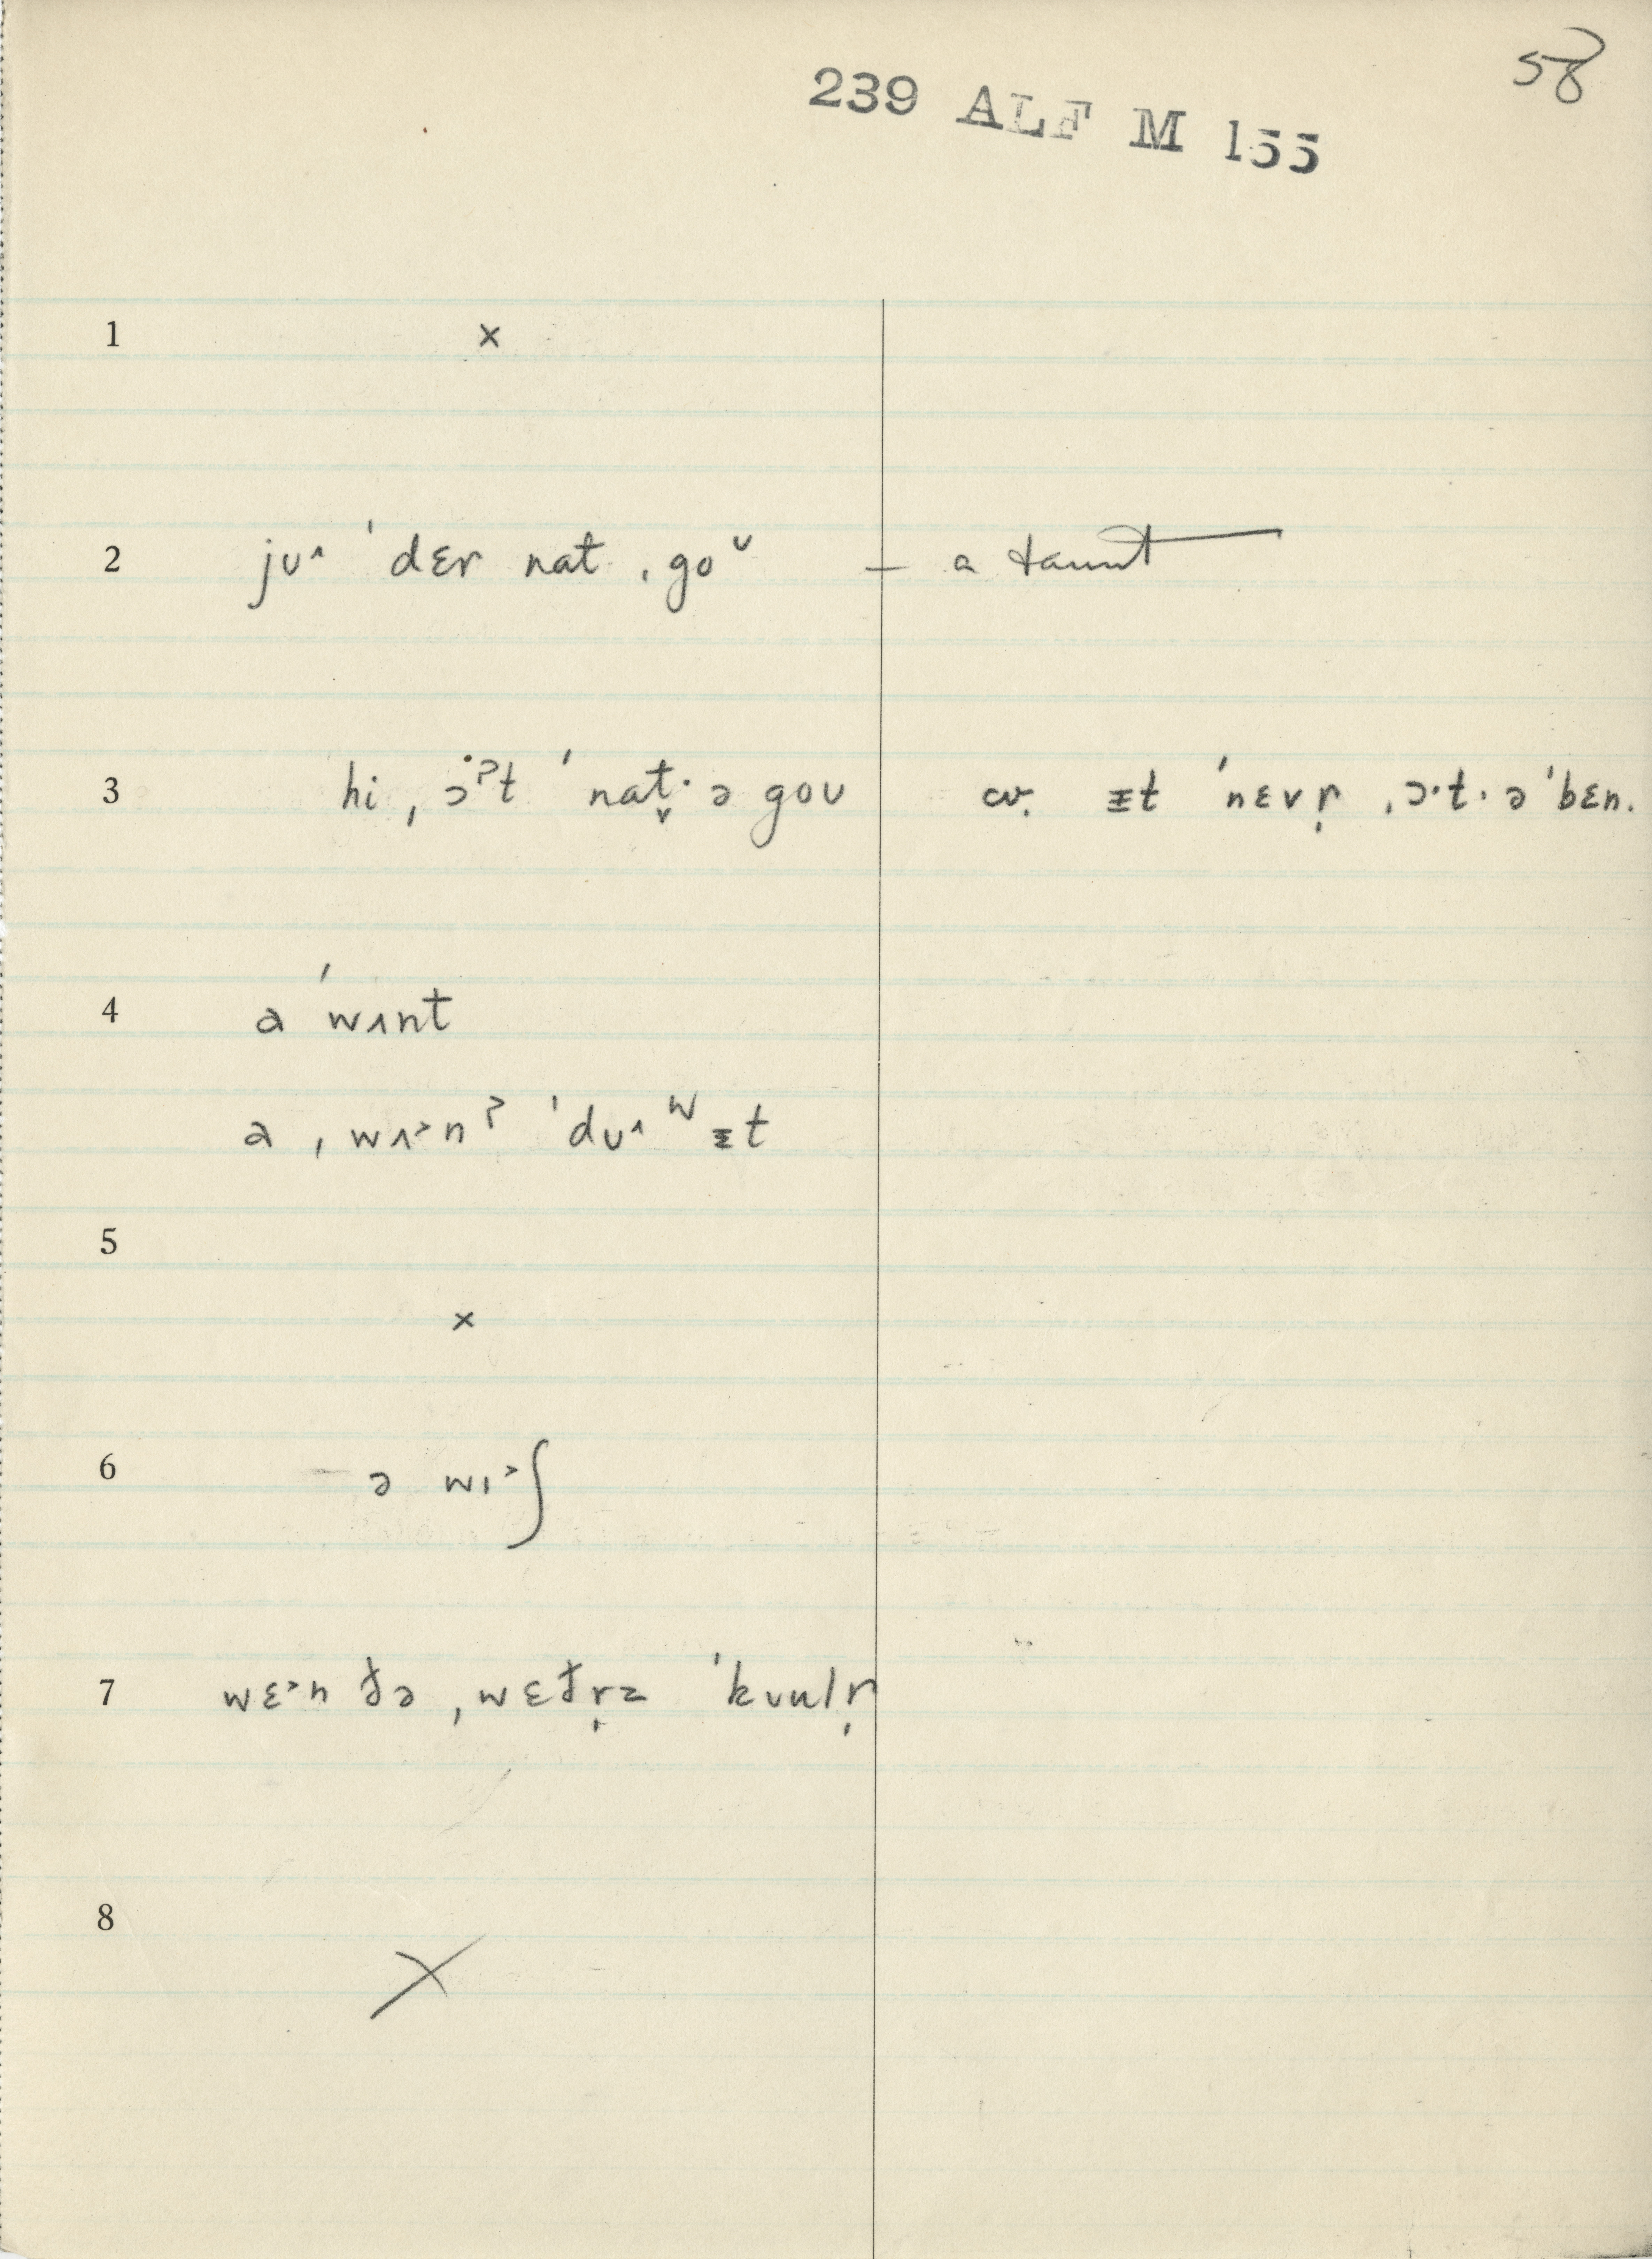 58
239 ALF M 155
1 ×
2 jʊ˄ ˈdɛr nat ˌgoᵛ – a taunt
3 hi ˌɔ·ˀt ˈnat̬· ə goʊ cv. ᵻt ˈnɛvr̩ ˌɔ·t· ə ˈbɛn.
4 a ˈwʌnt
a ˌwʌ˃nˀ ˈdʊ˄ʷᵻt
5
×
6 ə wɪ˃ʃ
7 wɛ˃n ðə ˌwɛðr̩z ˈkʊulr̩
8
×